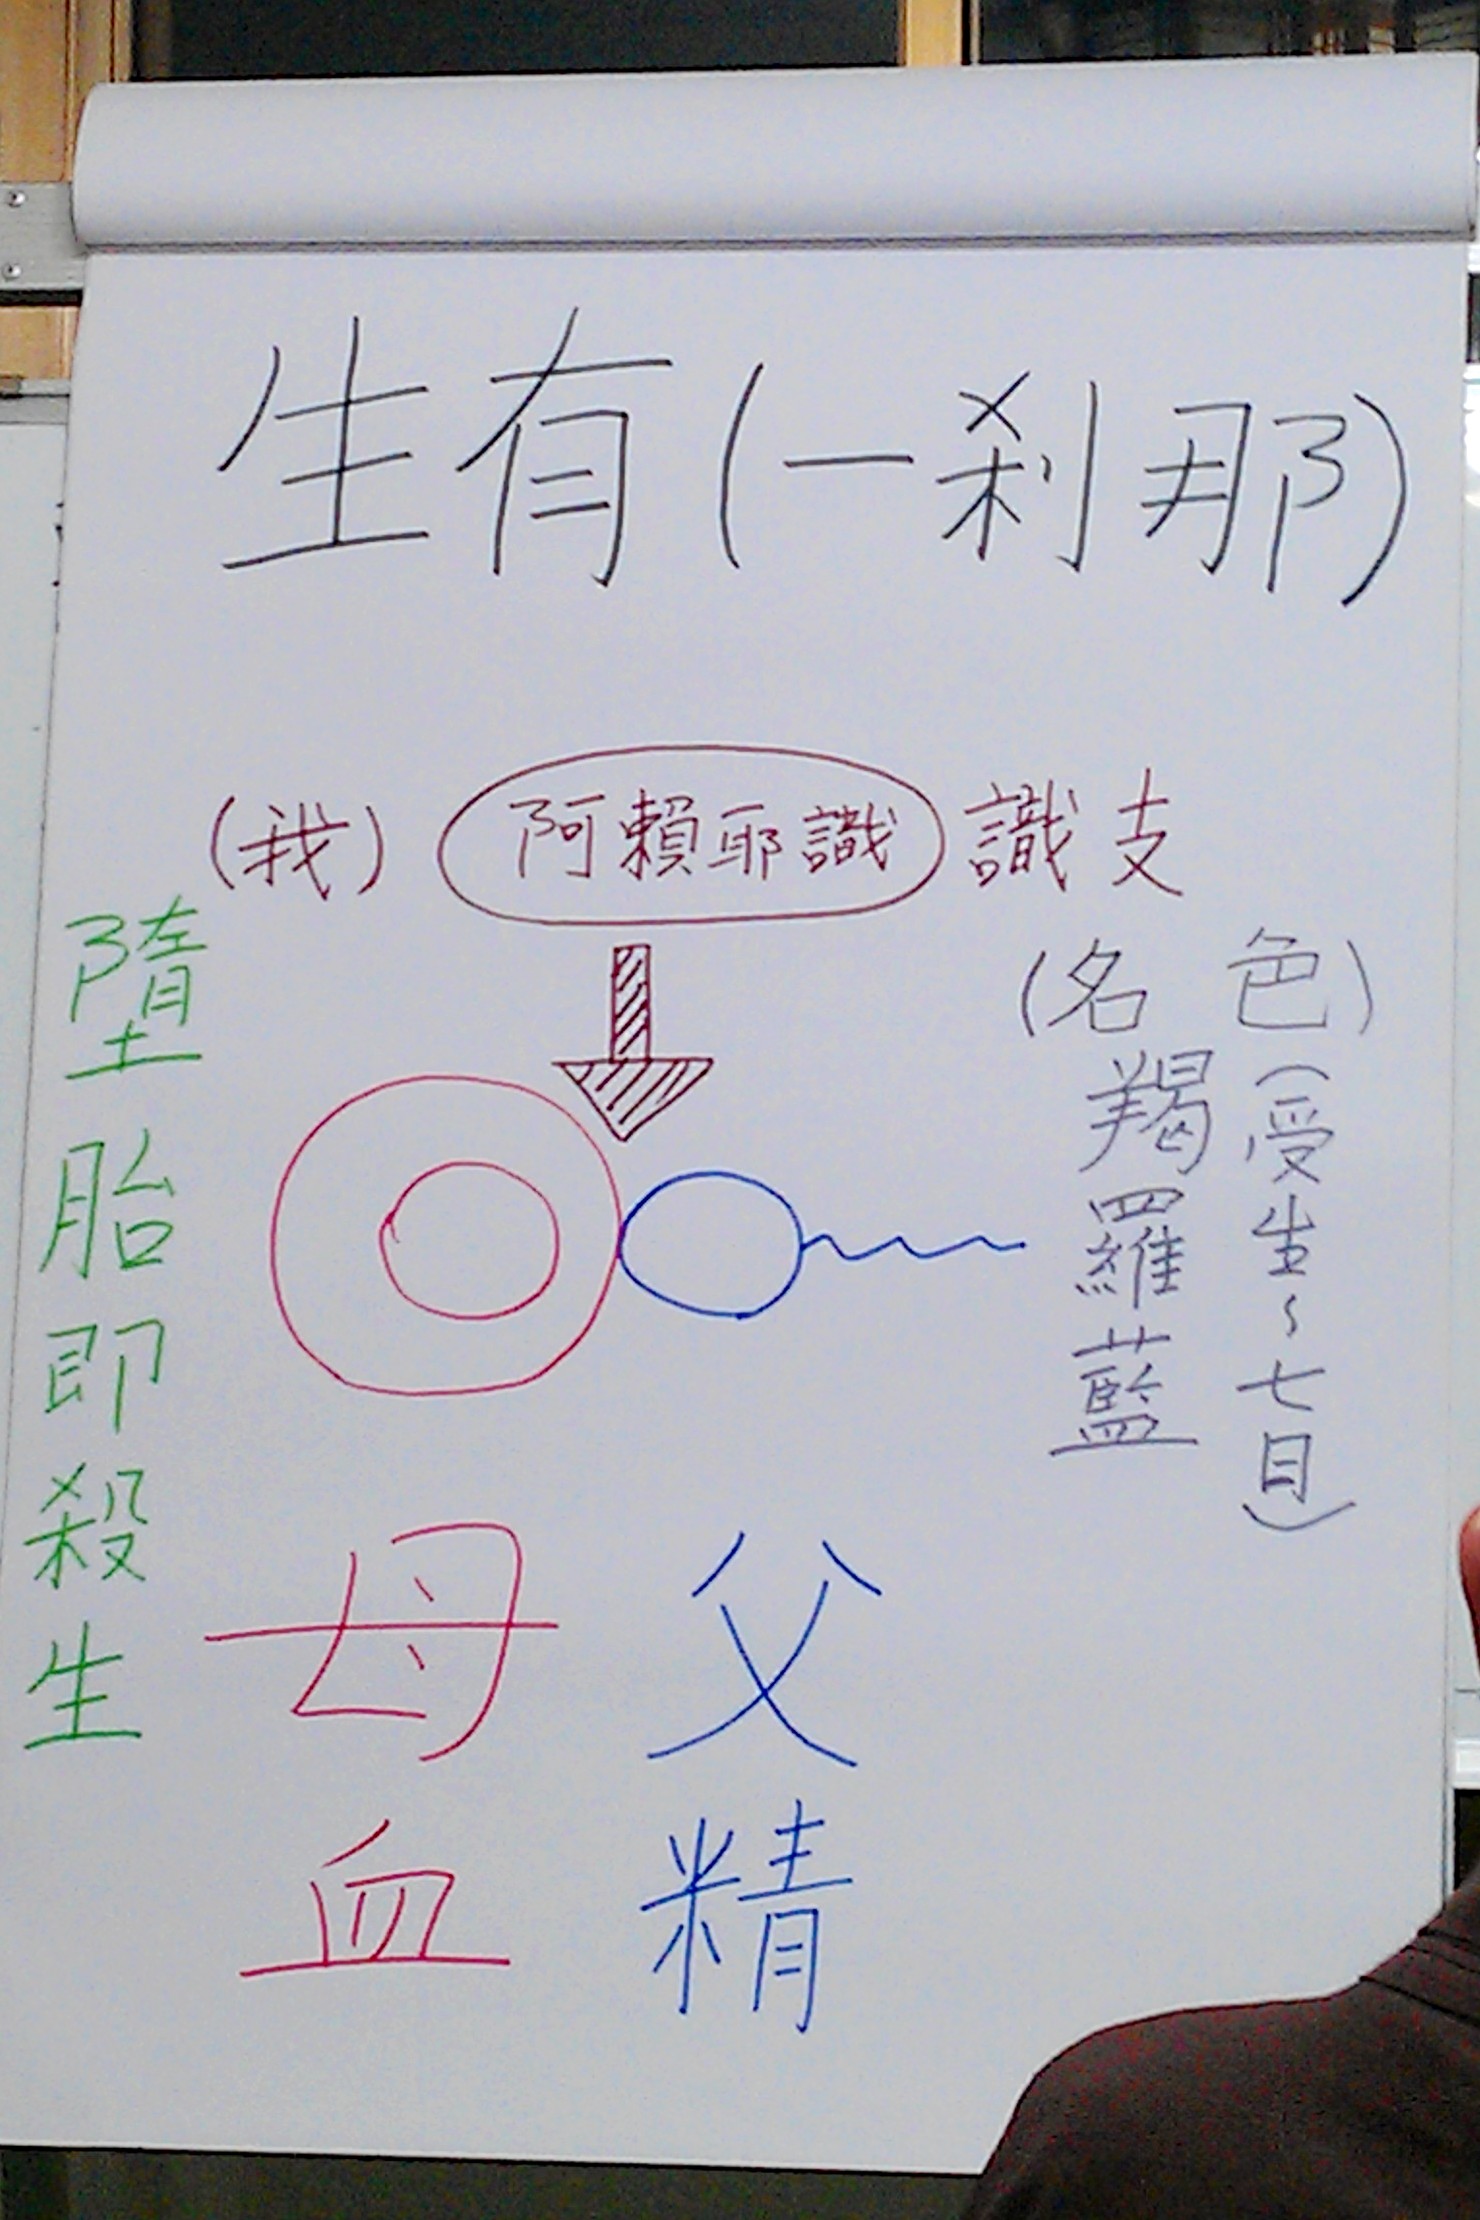 生有(一刹那)
(我) 阿賴耶識 識支
(名色)
羯羅藍
(受生~七日)
墮胎即殺生
母血
父精